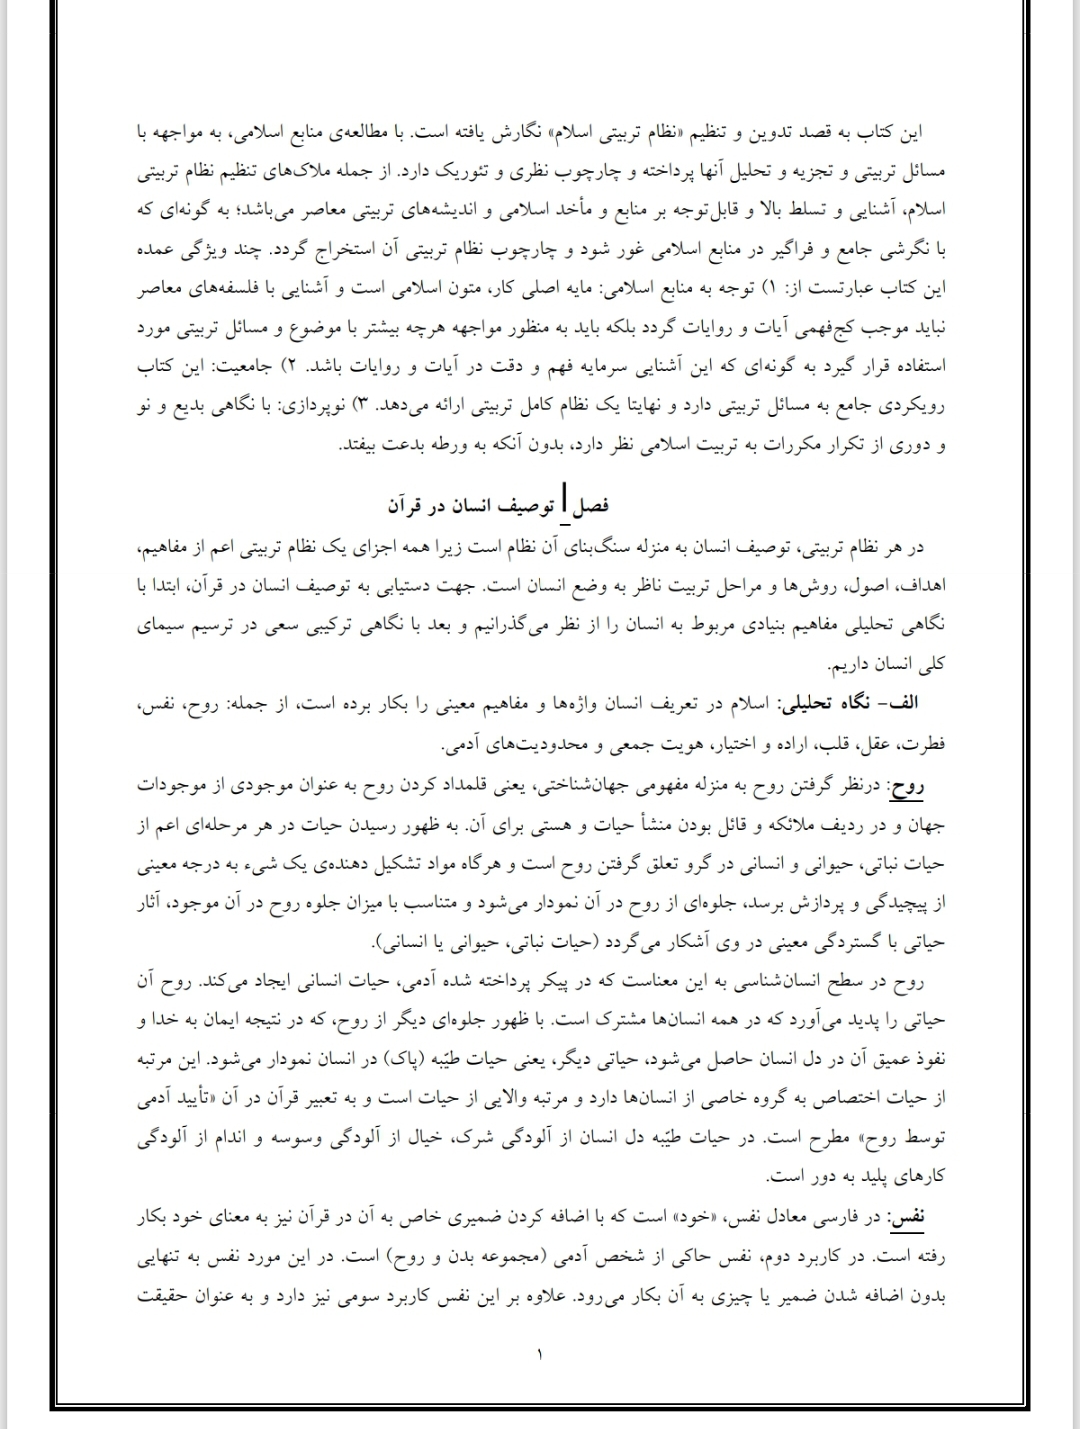 این کتاب به قصد تدوین و تنظیم «نظام تربیتی اسلام» نگارش یافته است. با مطالعه‌ی منابع اسلامی، به مواجهه با
مسائل تربیتی و تجزیه و تحلیل آنها پرداخته و چارچوب نظری و تئوریک دارد. از جمله ملاک‌های تنظیم نظام تربیتی
اسلام، آشنایی و تسلط بالا و قابل‌توجه بر منابع و مأخد اسلامی و اندیشه‌های تربیتی معاصر می‌باشد؛ به گونه‌ای که
با نگرشی جامع و فراگیر در منابع اسلامی غور شود و چارچوب نظام تربیتی آن استخراج گردد. چند ویژگی عمده
این کتاب عبارتست از: ۱) توجه به منابع اسلامی: مایه اصلی کار، متون اسلامی است و آشنایی با فلسفه‌های معاصر
نباید موجب کج‌فهمی آیات و روایات گردد بلکه باید به منظور مواجهه هرچه بیشتر با موضوع و مسائل تربیتی مورد
استفاده قرار گیرد به گونه‌ای که این آشنایی سرمایه فهم و دقت در آیات و روایات باشد. ۲) جامعیت: این کتاب
رویکردی جامع به مسائل تربیتی دارد و نهایتا یک نظام کامل تربیتی ارائه می‌دهد. ۳) نوپردازی: با نگاهی بدیع و نو
و دوری از تکرار مکررات به تربیت اسلامی نظر دارد، بدون آنکه به ورطه بدعت بیفتد.
فصل ا_ توصیف انسان در قرآن
در هر نظام تربیتی، توصیف انسان به منزله سنگ‌بنای آن نظام است زیرا همه اجزای یک نظام تربیتی اعم از مفاهیم،
اهداف، اصول، روش‌ها و مراحل تربیت ناظر به وضع انسان است. جهت دستیابی به توصیف انسان در قرآن، ابتدا با
نگاهی تحلیلی مفاهیم بنیادی مربوط به انسان را از نظر می‌گذرانیم و بعد با نگاهی ترکیبی سعی در ترسیم سیمای
کلی انسان داریم.
الف- نگاه تحلیلی: اسلام در تعریف انسان واژه‌ها و مفاهیم معینی را بکار برده است، از جمله: روح، نفس،
فطرت، عقل، قلب، اراده و اختیار، هویت جمعی و محدودیت‌های آدمی.
روح: درنظر گرفتن روح به منزله مفهومی جهان‌شناختی، یعنی قلمداد کردن روح به عنوان موجودی از موجودات
جهان و در ردیف ملائکه و قائل بودن منشأ حیات و هستی برای آن. به ظهور رسیدن حیات در هر مرحله‌ای اعم از
حیات نباتی، حیوانی و انسانی در گرو تعلق گرفتن روح است و هرگاه مواد تشکیل دهنده‌ی یک شیء به درجه معینی
از پیچیدگی و پردازش برسد، جلوه‌ای از روح در آن نمودار می‌شود و متناسب با میزان جلوه روح در آن موجود، آثار
حیاتی با گستردگی معینی در وی آشکار می‌گردد (حیات نباتی، حیوانی یا انسانی).
روح در سطح انسان‌شناسی به این معناست که در پیکر پرداخته شده آدمی، حیات انسانی ایجاد می‌کند. روح آن
حیاتی را پدید می‌آورد که در همه انسان‌ها مشترک است. با ظهور جلوه‌ای دیگر از روح، که در نتیجه ایمان به خدا و
نفوذ عمیق آن در دل انسان حاصل می‌شود، حیاتی دیگر، یعنی حیات طیّبه (پاک) در انسان نمودار می‌شود. این مرتبه
از حیات اختصاص به گروه خاصی از انسان‌ها دارد و مرتبه والایی از حیات است و به تعبیر قرآن در آن «تأیید آدمی
توسط روح» مطرح است. در حیات طیّبه دل انسان از آلودگی شرک، خیال از آلودگی وسوسه و اندام از آلودگی
کارهای پلید به دور است.
نفس: در فارسی معادل نفس، «خود» است که با اضافه کردن ضمیری خاص به آن در قرآن نیز به معنای خود بکار
رفته است. در کاربرد دوم، نفس حاکی از شخص آدمی (مجموعه بدن و روح) است. در این مورد نفس به تنهایی
بدون اضافه شدن ضمیر یا چیزی به آن بکار می‌رود. علاوه بر این نفس کاربرد سومی نیز دارد و به عنوان حقیقت
۱